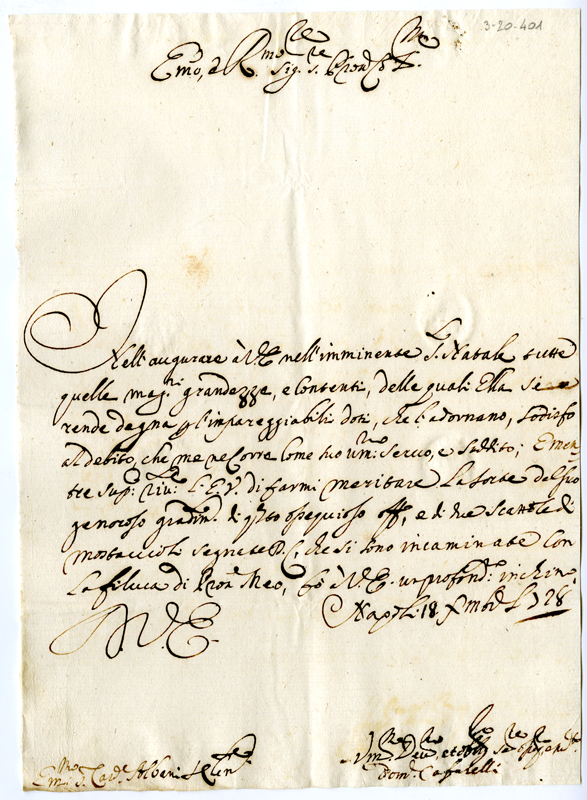 3-20-401
Emo, e Rmo Sig.r Sig.r Pron
Nell'augurare à V.E nell'imminente S. Natale tutte
quelle mag.ri grandezze, e Contenti, delle quali Ella si
rende degna p l'impareggiabili doti, che l'adornano, sodisfo
al debito, che me ne Corre Come suo um.o seruo, e suddito; E men
tre sup.co riu: L'E.V. di farmi meritare La sorte del suo
generoso gradim. di q.sto ossequioso off.o, e di due scattole di
mostaccioli segnate D.C, che si sono incaminate Con
La filuca di Pron Meo, fo à V.E. un profond.o inchino
Napoli 18 Xmbre 1728
D.V.E.
Em.mo S. Card.e Albani
Vm.o Deu.mo et obl.mo
Dom.co Cafarelli